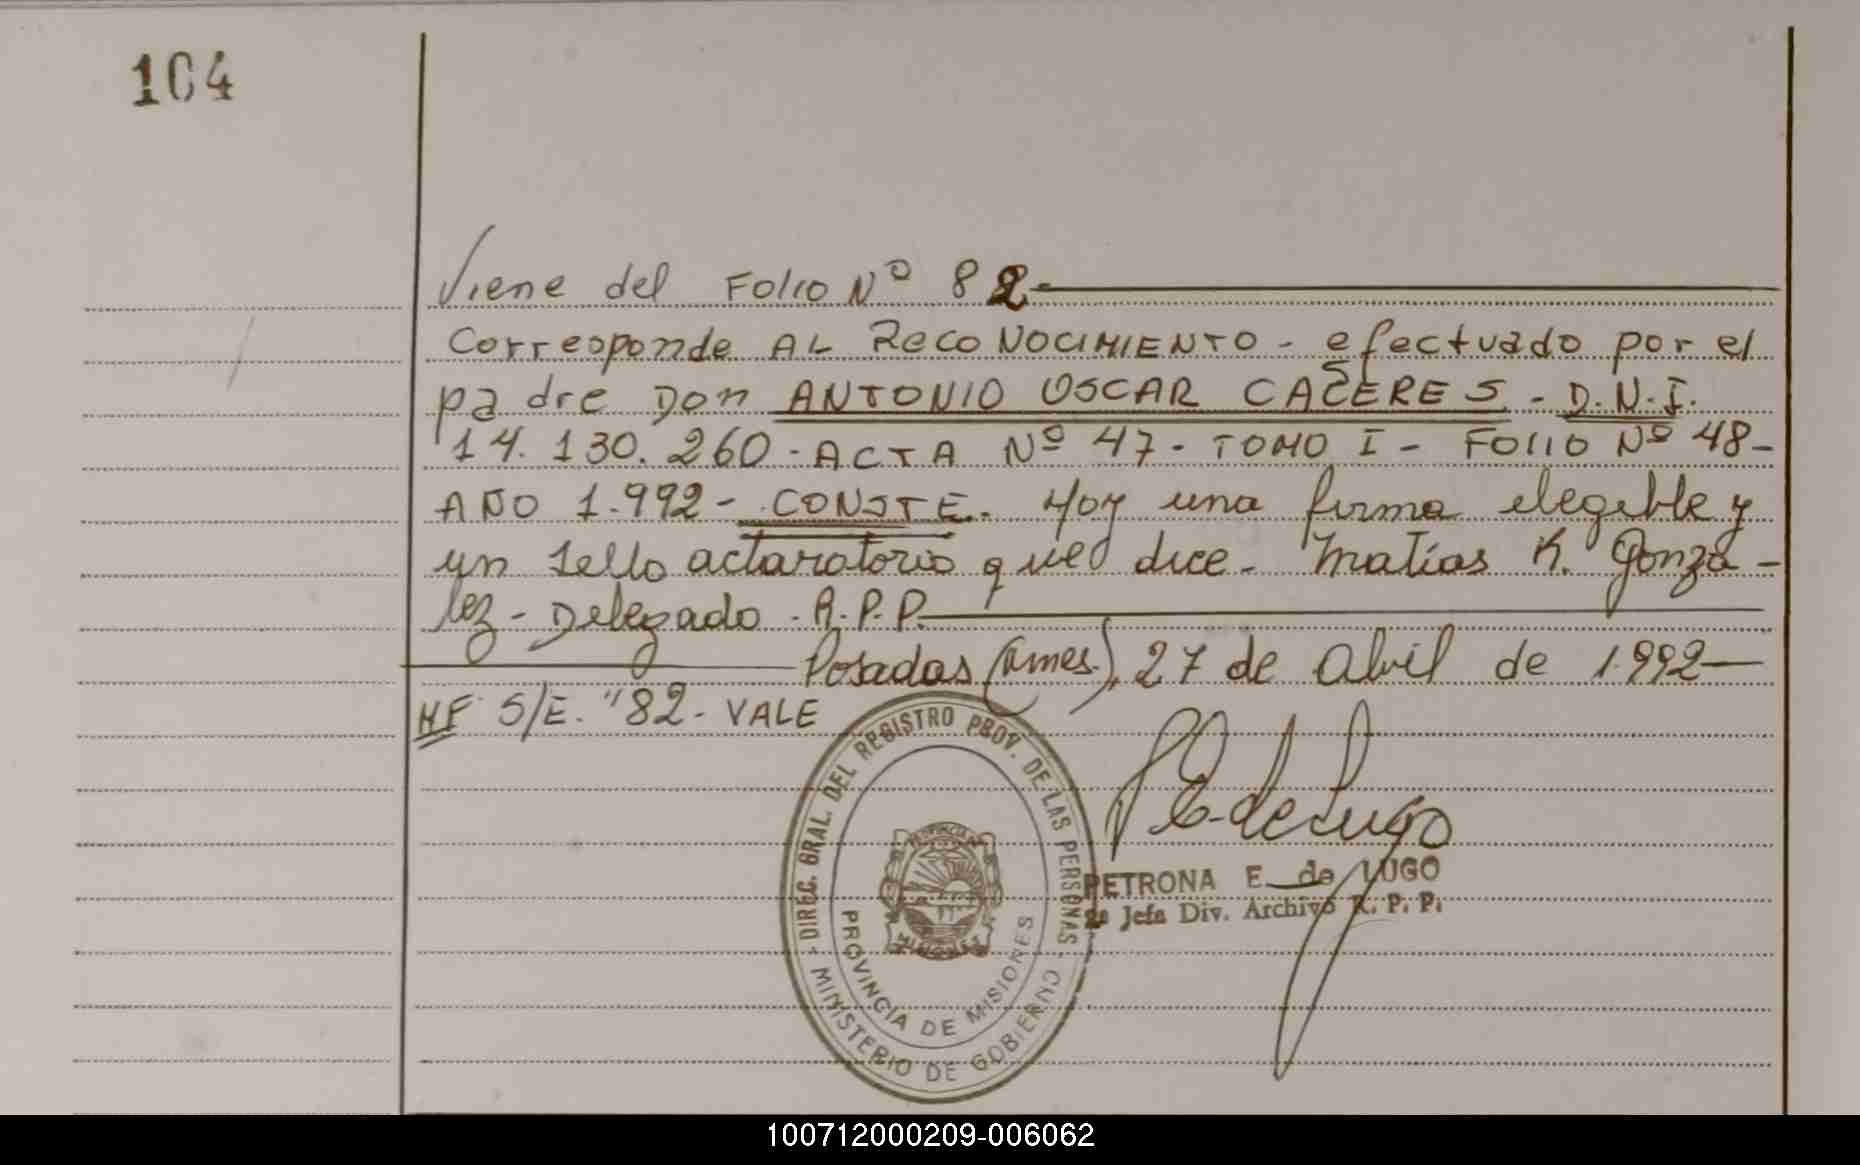 104
Viene del Folio Nº 82-
Corresponde AL RecoNOCIMIENTO - efectuado por el
padre Don ANTONIO OSCAR CACERES - D.N.I.
14.130.260 - ACTA Nº 47 - TOMO I - FOLIO Nº 48 -
AÑO 1.992 - CONSTE. Hoy una firma elegible y
un sello aclaratorio que dice - Matías R. Gonza-
lez - Delegado - R.P.P.
Posadas (mnes.), 27 de Abril de 1.992
S/E. "82 - VALE
DIREC. GRAL. DEL REGISTRO PROV. DE LAS PERSONAS
MINISTERIO DE GOBIERNO
PROVINCIA DE MISIONES
P E. de Lugo
PETRONA E. de LUGO
2ª Jefa Div. Archivo R. P. P.
100712000209-006062